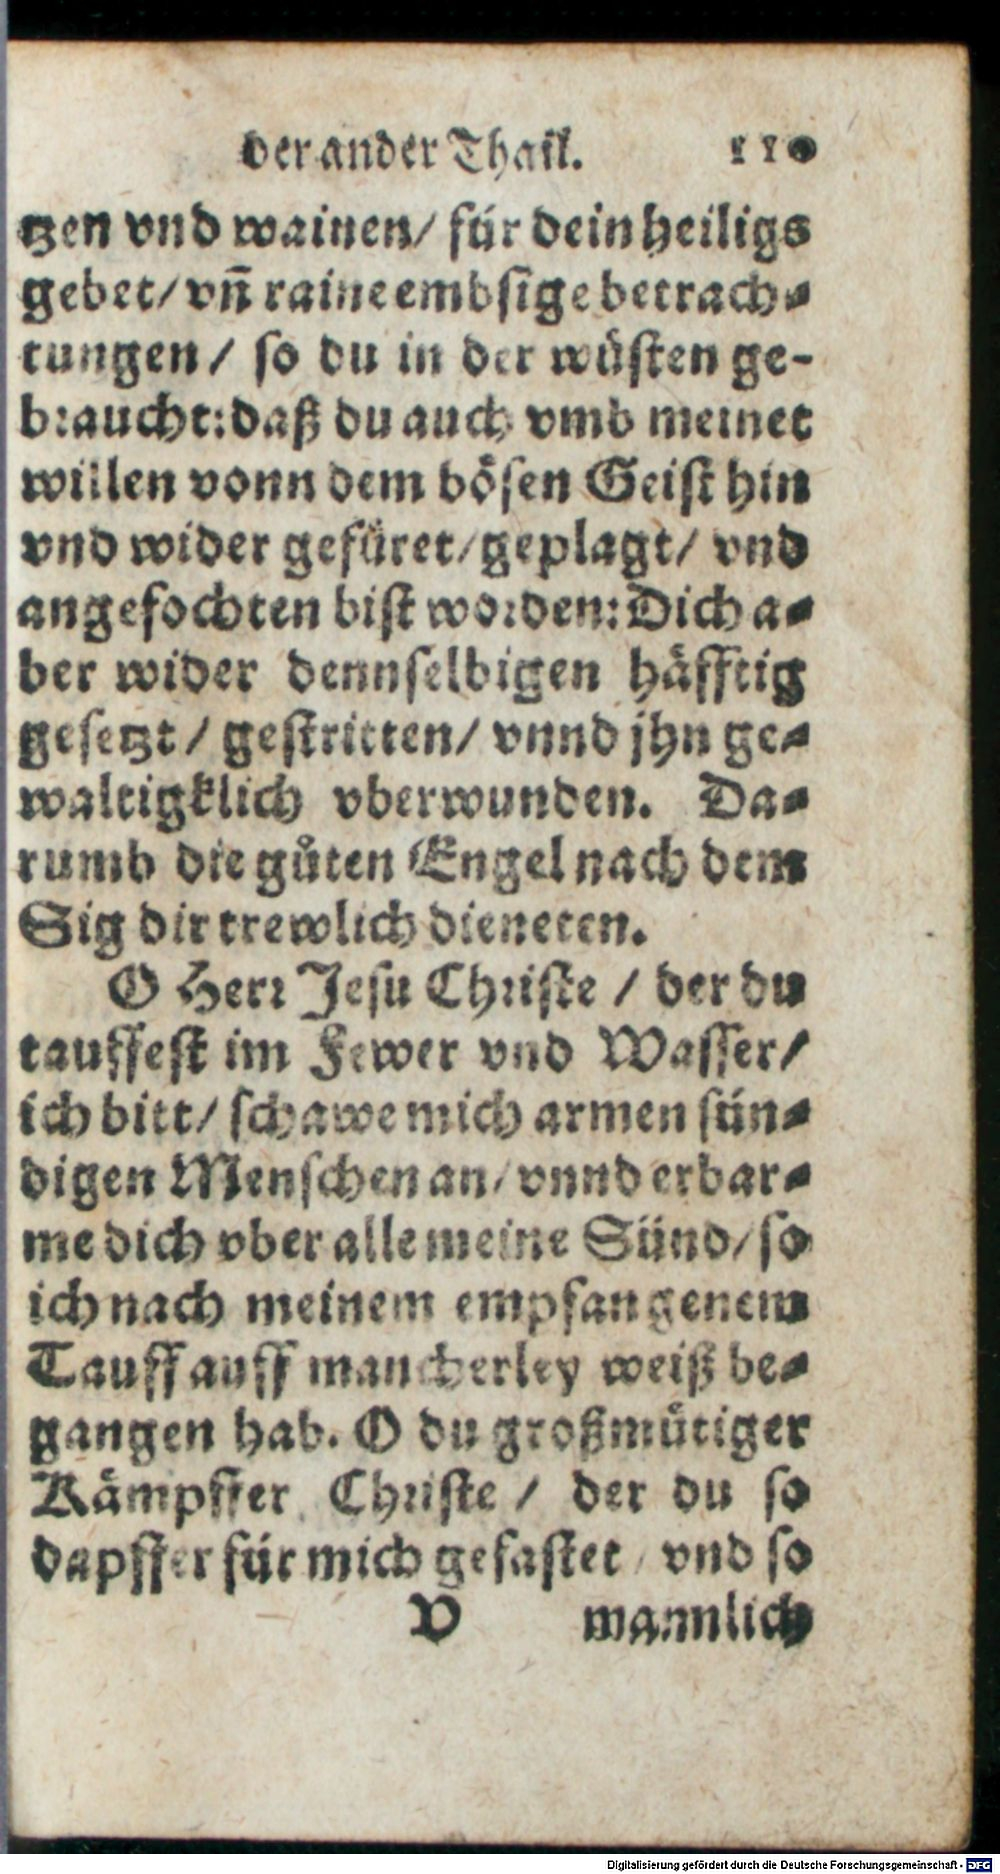 der ander Thail. 110
tzen vnd wainen/ für dein heiligs
gebet/ vñ raine embsige betrach-
tungen/ so du in der wüsten ge-
braucht: daß du auch vmb meinet
willen vonn dem bösen Geist hin
vnd wider gefüret/ geplagt/ vnd
angefochten bist worden: Dich a-
ber wider dennselbigen häfftig
gesetzt/ gestritten/ vnnd jhn ge-
waltigklich vberwunden. Da-
rumb die gůten Engel nach dem
Sig dir trewlich dieneten.
O Herr Jesu Christe/ der du
tauffest im Fewer vnd Wasser/
ich bitt/ schawe mich armen sün-
digen Menschen an/ vnnd erbar-
me dich vber alle meine Sünd/ so
ich nach meinem empfangenem
Tauff auff mancherley weiß be-
gangen hab. O du großmütiger
Kämpffer Christe/ der du so
dapffer für mich gefastet/ vnd so
V mannlich
Digitalisierung gefördert durch die Deutsche Forschungsgemeinschaft - DFG